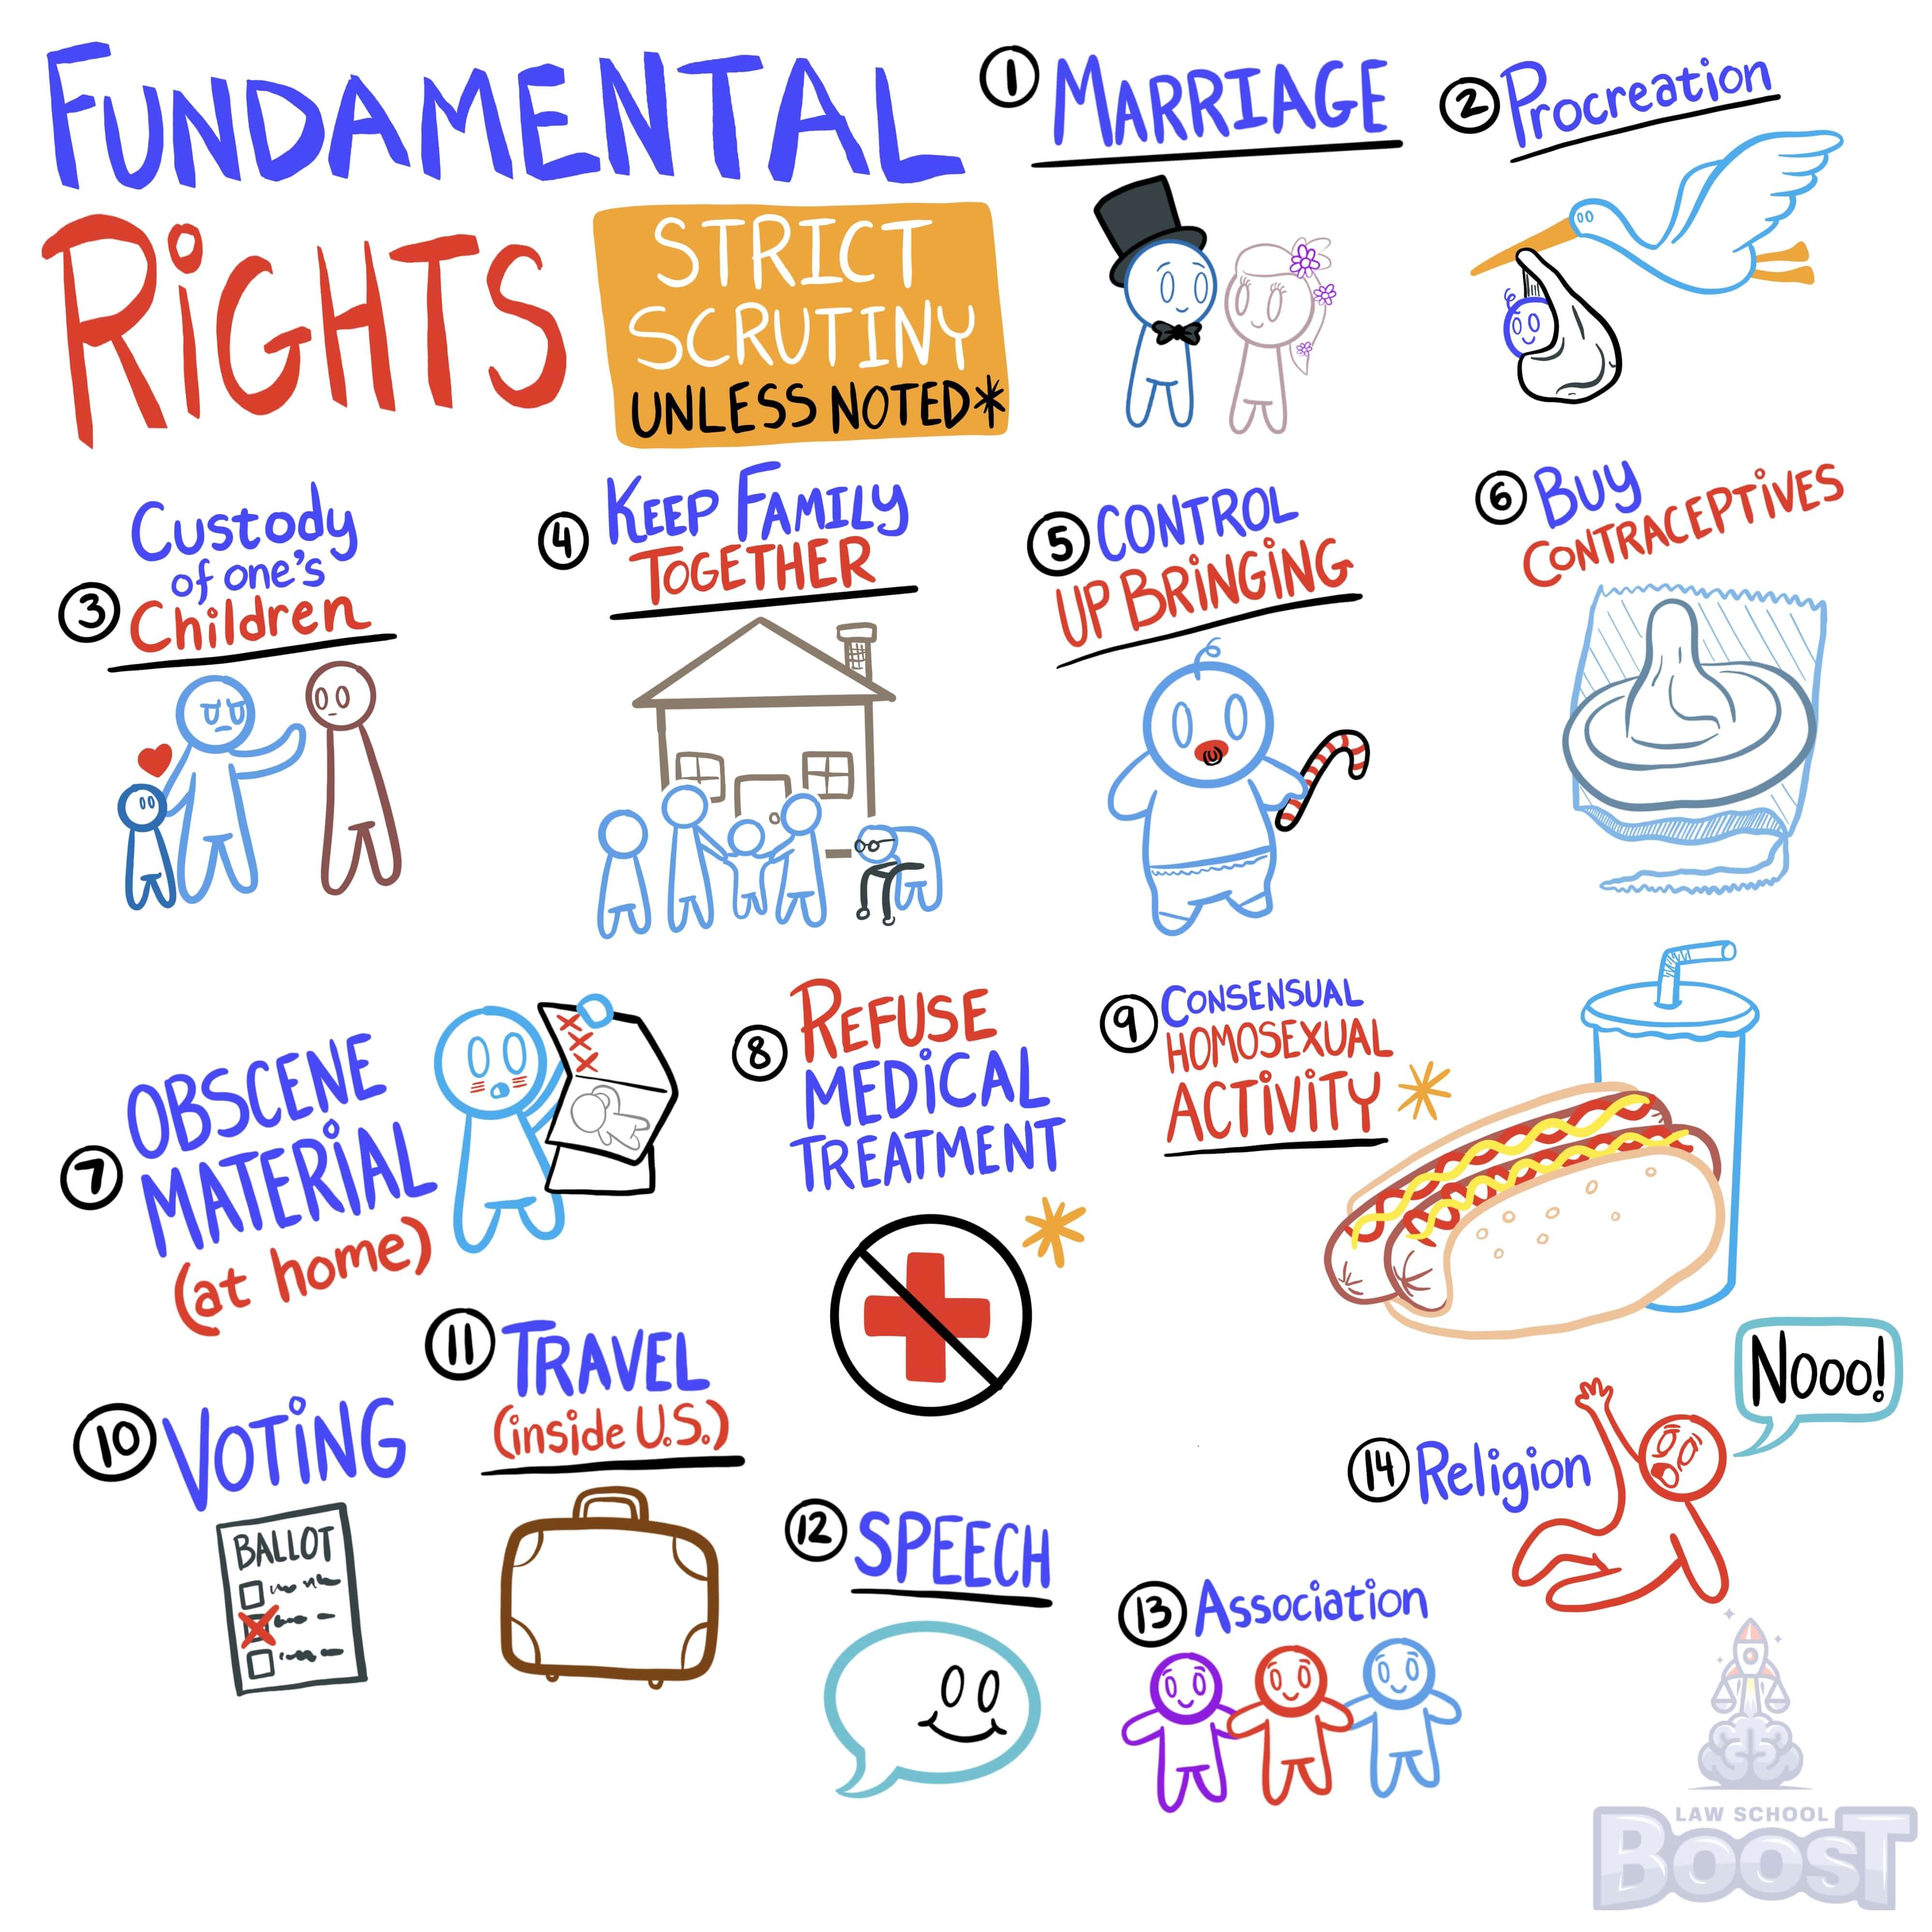 FUNDAMENTAL
RIGHTS
STRICT
SCRUTINY
UNLESS NOTED*
1 MARRIAGE
2 Procreation
3 Custody
of one's
Children
4 KEEP FAMILY
TOGETHER
5 CONTROL
UP BRINGING
6 BUY
CONTRACEPTIVES
7 OBSCENE
MATERIAL
(at home)
XXX
8 REFUSE
MEDICAL
TREATMENT
*
9 CONSENSUAL
HOMOSEXUAL
ACTIVITY *
10 VOTING
BALLOT
11 TRAVEL
(inside U.S.)
12 SPEECH
13 Association
14 Religion
Nooo!
LAW SCHOOL
BOOST